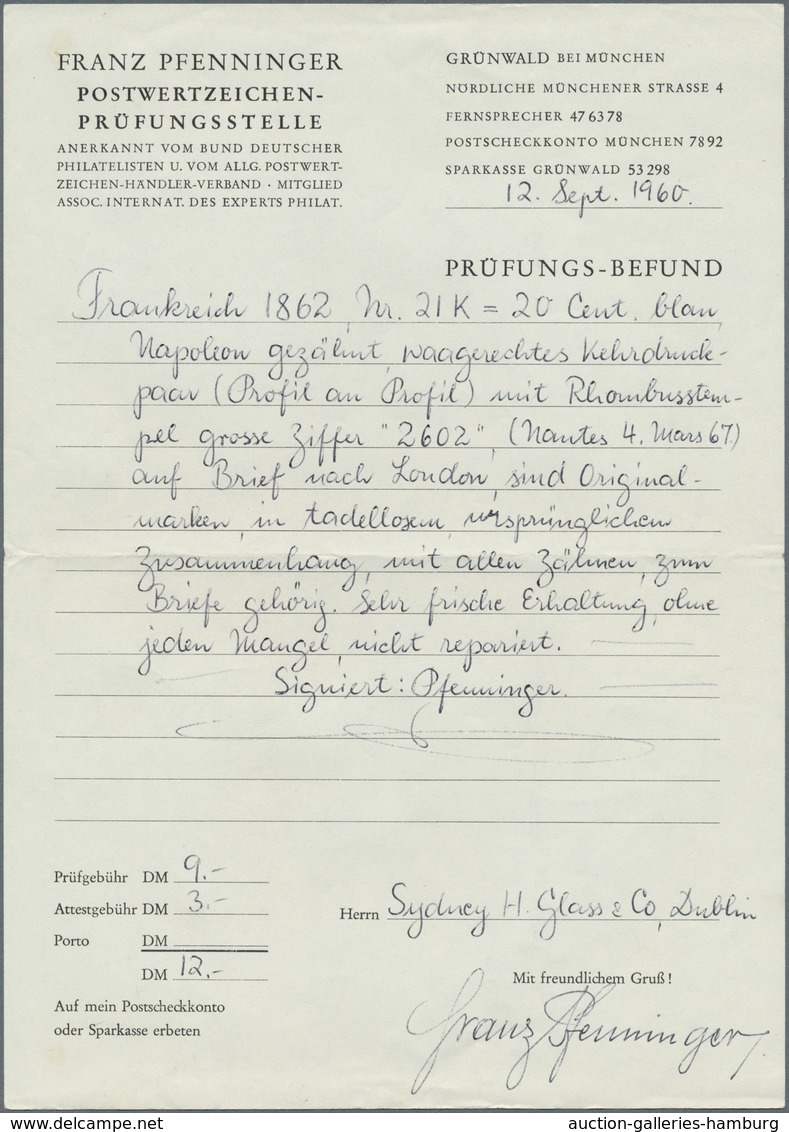 FRANZ PFENNINGER
POSTWERTZEICHEN-
PRÜFUNGSSTELLE
ANERKANNT VOM BUND DEUTSCHER
PHILATELISTEN U. VOM ALLG. POSTWERT-
ZEICHEN-HÄNDLER-VERBAND · MITGLIED
ASSOC. INTERNAT. DES EXPERTS PHILAT.
GRÜNWALD BEI MÜNCHEN
NÖRDLICHE MÜNCHENER STRASSE 4
FERNSPRECHER 47 63 78
POSTSCHECKKONTO MÜNCHEN 78 92
SPARKASSE GRÜNWALD 53 298
12. Sept. 1960.
PRÜFUNGS-BEFUND
Frankreich 1862, Nr. 21K = 20 Cent. blau,
Napoleon gezähnt, waagerechtes Kehrdruck-
paar (Profil an Profil) mit Rhombusstem-
pel grosse Ziffer "2602", (Nantes 4. Mars 67.)
auf Brief nach London, sind Original-
marken, in tadellosem, ursprünglichem
Zusammenhang, mit allen Zähnen, zum
Briefe gehörig. Sehr frische Erhaltung, ohne
jeden Mangel, nicht repariert.
Signiert: Pfenninger.
Prüfgebühr DM 9.-
Attestgebühr DM 3.-
Porto DM
DM 12.-
Auf mein Postscheckkonto
oder Sparkasse erbeten
Herrn Sydney H. Glass & Co, Dublin
Mit freundlichem Gruß!
Franz Pfenninger.
www.delcampe.net
auction-galleries-hamburg